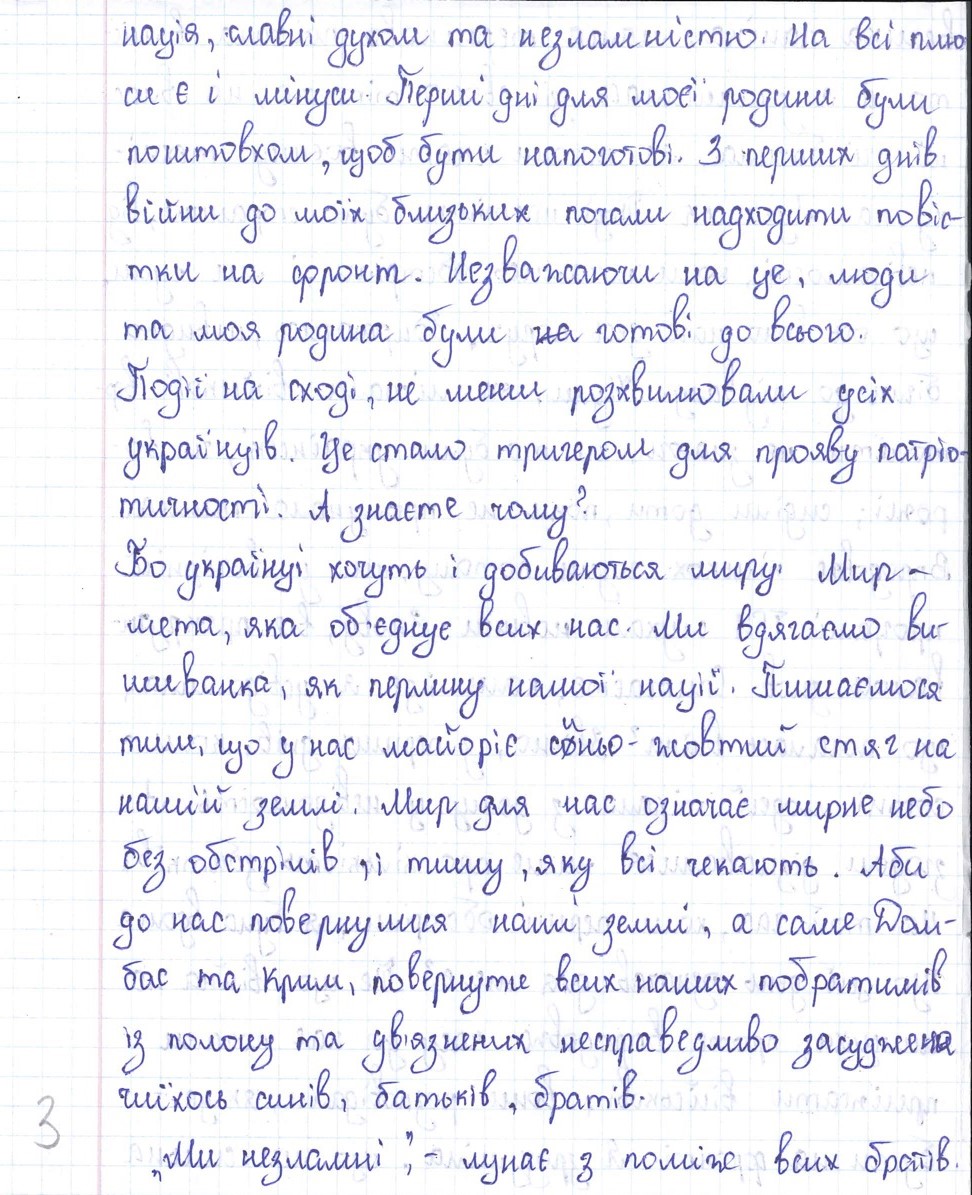 нація, славні духом та незламністю. На всі плю
си є і мінуси. Перші дні для моєї родини були
поштовхом, щоб бути напоготові. З перших днів
війни до моїх близьких почали надходити повіс-
тки на фронт. Незважаючи на це, люди
та моя родина були не готові до всього.
Події на сході, не менш розхвилювали усіх
українців. Це стало тригером для прояву патріо-
тичності. А знаєте чому?
Бо українці хочуть і добиваються миру. Мир-
мета, яка об'єднує всих нас. Ми вдягаємо ви-
шиванка, як перлину нашої нації. Пишаємося
тим, що у нас майоріє синьо-жовтий стяг на
нашій землі. Мир для нас означає мирне небо
без обстрілів, і тишу, яку всі чекають. Аби
до нас повернулися наші землі, а саме Дом-
бас та Крим, повернуте всих наших побратимів
із полону та двіязнених несправедливо засуджена
чиїхось синів, батьків, братів.
3
„Ми незламні", - лунає з поміже всих братів.